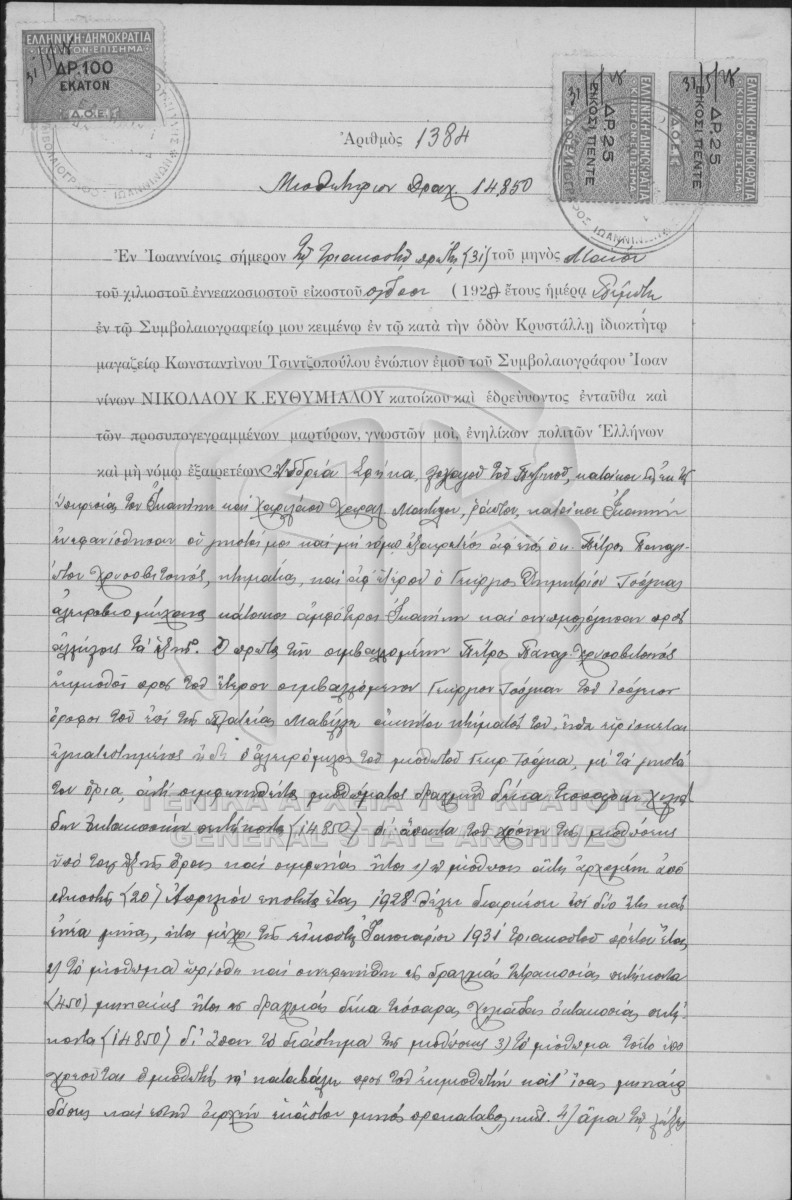 ΕΛΛΗΝΙΚΗ ΔΗΜΟΚΡΑΤΙΑ
ΚΙΝΗΤΟΝ ΕΠΙΣΗΜΑ
31/5/28
ΔΡ.100
ΕΚΑΤΟΝ
Δ.Ο.Ε.Σ
ΕΛΛΗΝΙΚΗ·ΔΗΜΟΚΡΑΤΙΑ
ΚΙΝΗΤΟΝ ΕΠΙΣΗΜΑ
31/5/28
ΔΡ.25
ΕΙΚΟΣΙ ΠΕΝΤΕ
ΕΛΛΗΝΙΚΗ·ΔΗΜΟΚΡΑΤΙΑ
ΚΙΝΗΤΟΝ ΕΠΙΣΗΜΑ
31/5/28
ΔΡ.25
ΕΙΚΟΣΙ ΠΕΝΤΕ
Ἀριθμὸς 1384
Μισθωτήριον Δραχ. 14850
Ἐν Ἰωαννίνοις σήμερον τῇ τριακοστῇ πρώτῃ (31) τοῦ μηνὸς Μαΐου
τοῦ χιλιοστοῦ ἐννεακοσιοστοῦ εἰκοστοῦ ὀγδόου (1928) ἔτους ἡμέρᾳ Πέμπτῃ
ἐν τῷ Συμβολαιογραφείῳ μου κειμένῳ ἐν τῷ κατὰ τὴν ὁδὸν Κρυστάλλη ἰδιοκτήτῳ
μαγαζείῳ Κωνσταντίνου Τσιντζοπούλου ἐνώπιον ἐμοῦ τοῦ Συμβολαιογράφου Ἰωαν
νίνων ΝΙΚΟΛΑΟΥ Κ. ΕΥΘΥΜΙΑΔΟΥ κατοίκου καὶ ἑδρεύοντος ἐνταῦθα καὶ
τῶν προσυπογεγραμμένων μαρτύρων, γνωστῶν μοι, ἐνηλίκων πολιτῶν Ἑλλήνων
καὶ μὴ νόμῳ ἐξαιρετέων Ἀνδρέα τοῦ κατοίκου
Ἰωαννίνων καὶ Χαριλάου κατοίκου Ἰωαννίνων
ἐνεφανίσθησαν οἱ γνωστοί μοι καὶ μὴ νόμῳ ἐξαιρετέοι ἀφ' ἑνὸς ὁ κ. Πέτρος Παναγ.
Χρυσοβιτσινός, κτηματίας, καὶ ἀφ' ἑτέρου ὁ Γεώργιος Δημητρίου Τσόγκας
ἀλευροβιομήχανος κάτοικοι ἀμφότεροι Ἰωαννίνων καὶ συνωμολόγησαν πρὸς
ἀλλήλους τὰ ἑξῆς. Ὁ πρῶτος τῶν συμβαλλομένων Πέτρος Παναγ. Χρυσοβιτσινός
ἐκμισθοῖ πρὸς τὸν ἕτερον συμβαλλόμενον Γεώργιον Τσόγκαν τὸν ἰσόγειον
ὄροφον τοῦ ἐπὶ τῆς Πλατείας Μαβίλλη ἀκινήτου κτήματός του, ἔνθα εὑρίσκεται
ἐγκατεστημένος ἤδη ὁ ἀλευρόμυλος τοῦ μισθωτοῦ Γεωρ. Τσόγκα, μὲ τὰ γνωστά
του ὅρια, ἀντὶ συμφωνηθέντος μισθώματος δραχμῶν δέκα τεσσάρων χιλιά
δων ὀκτακοσίων πεντήκοντα (14850) δι' ἅπαντα τὸν χρόνον τῆς μισθώσεως
ὑπὸ τοὺς ἑξῆς ὅρους καὶ συμφωνίας ἤτοι 1) ἡ μίσθωσις αὕτη ἀρχομένη ἀπὸ
εἰκοστῆς (20) Ἀπριλίου ἐνεστῶτος ἔτους 1928 θέλει διαρκέσει ἐπὶ δύο ἔτη καὶ
ἐννέα μῆνας, ἤτοι μέχρι τῆς εἰκοστῆς Ἰανουαρίου 1931 τριακοστοῦ πρώτου ἔτους
2) τὸ μίσθωμα ὡρίσθη καὶ συνεφωνήθη εἰς δραχμὰς τετρακοσίας πεντήκοντα
(450) μηνιαίως ἤτοι εἰς δραχμὰς δέκα τέσσαρας χιλιάδας ὀκτακοσίας πεντή-
κοντα (14850) δι' ὅλον τὸ διάστημα τῆς μισθώσεως 3) τὸ μίσθωμα τοῦτο ὑπο
χρεοῦται ὁ μισθωτὴς νὰ καταβάλῃ πρὸς τὸν ἐκμισθωτὴν κατ' ἴσας μηνιαίας
δόσεις καὶ εἰς τὴν ἀρχὴν ἑκάστου μηνὸς προκαταβολικῶς. 4) ἅμα τῇ λήξει
ΓΕΝΙΚΑ ΑΡΧΕΙΑ ΤΟΥ ΚΡΑΤΟΥΣ
GENERAL STATE ARCHIVES